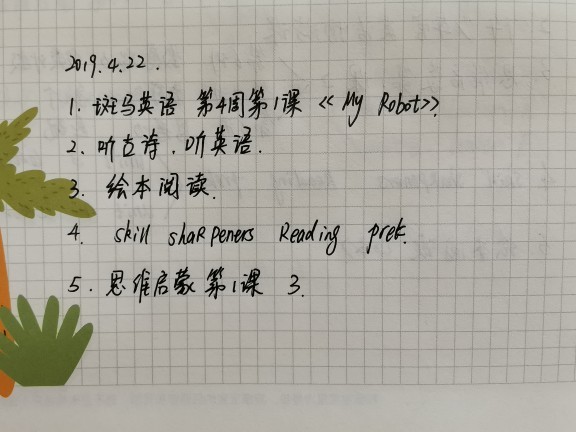 2019.4.22.
1. 斑马英语 第4周第1课 《My Robot》
2、听古诗、听英语.
3. 绘本阅读.
4. skill sharpeners Reading prek.
5. 思维启蒙 第1课 3.